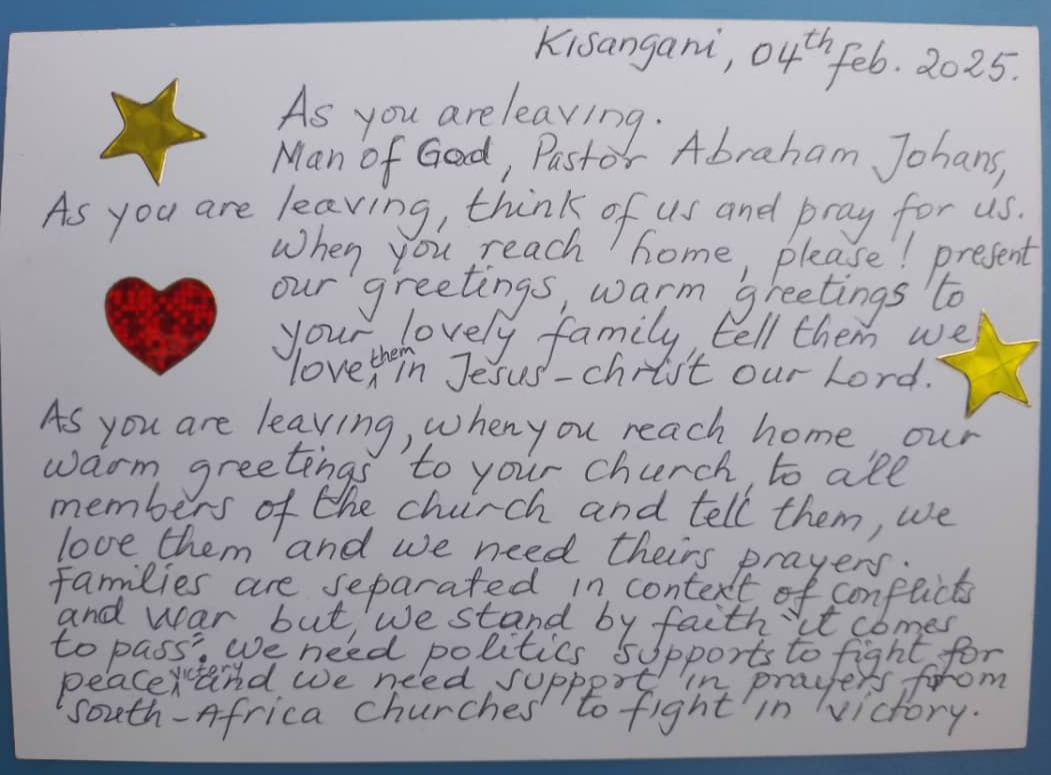 Kisangani, 04th feb. 2025.
As you are leaving.
Man of God, Pastor Abraham Johans,
As you are leaving, think of us and pray for us.
When you reach home, please! present
our greetings, warm greetings to
your lovely family, tell them we
love them in Jesus-christ our Lord.
As you are leaving, when you reach home, our
warm greetings to your church, to all
members of the church and tell them, we
love them and we need theirs prayers.
Families are separated in context of conflicts
and war but, we stand by faith "it comes
to pass". We need politics supports to fight for
peace, victory and we need support in prayers from
South-Africa churches to fight in victory.